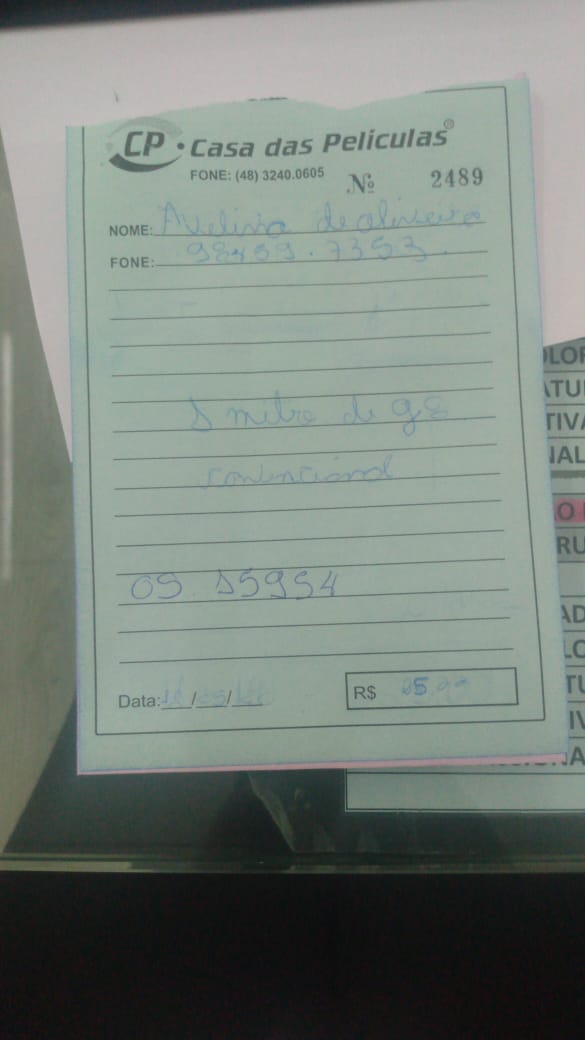 CP • Casa das Películas®
FONE: (48) 3240.0605 Nº 2489
NOME: Avelino de oliveira
FONE: 98459.7353
1 metro de g8
convencional
OS 15954
Data: / /
R$
LOR
ATU
TIVA
NAL
O
RU
AD
LO
TU
IV